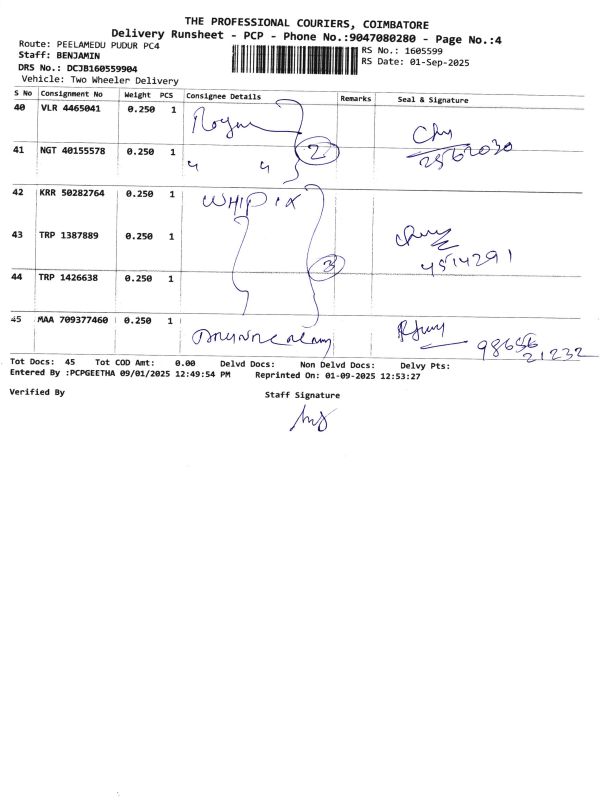 THE PROFESSIONAL COURIERS, COIMBATORE
Delivery Runsheet - PCP - Phone No.:9047080280 - Page No.:4
Route: PEELAMEDU PUDUR PC4
Staff: BENJAMIN
DRS No.: DCJB160559904
Vehicle: Two Wheeler Delivery
RS No.: 1605599
RS Date: 01-Sep-2025
S No Consignment No Weight PCS Consignee Details Remarks Seal & Signature
40 VLR 4465041 0.250 1
41 NGT 40155578 0.250 1 " " 2 2562030
42 KRR 50282764 0.250 1 WHIPIX
43 TRP 1387889 0.250 1 4514291
44 TRP 1426638 0.250 1 3
45 MAA 709377460 0.250 1 98656
21232
Tot Docs: 45 Tot COD Amt: 0.00 Delvd Docs: Non Delvd Docs: Delvy Pts:
Entered By :PCPGEETHA 09/01/2025 12:49:54 PM Reprinted On: 01-09-2025 12:53:27
Verified By Staff Signature